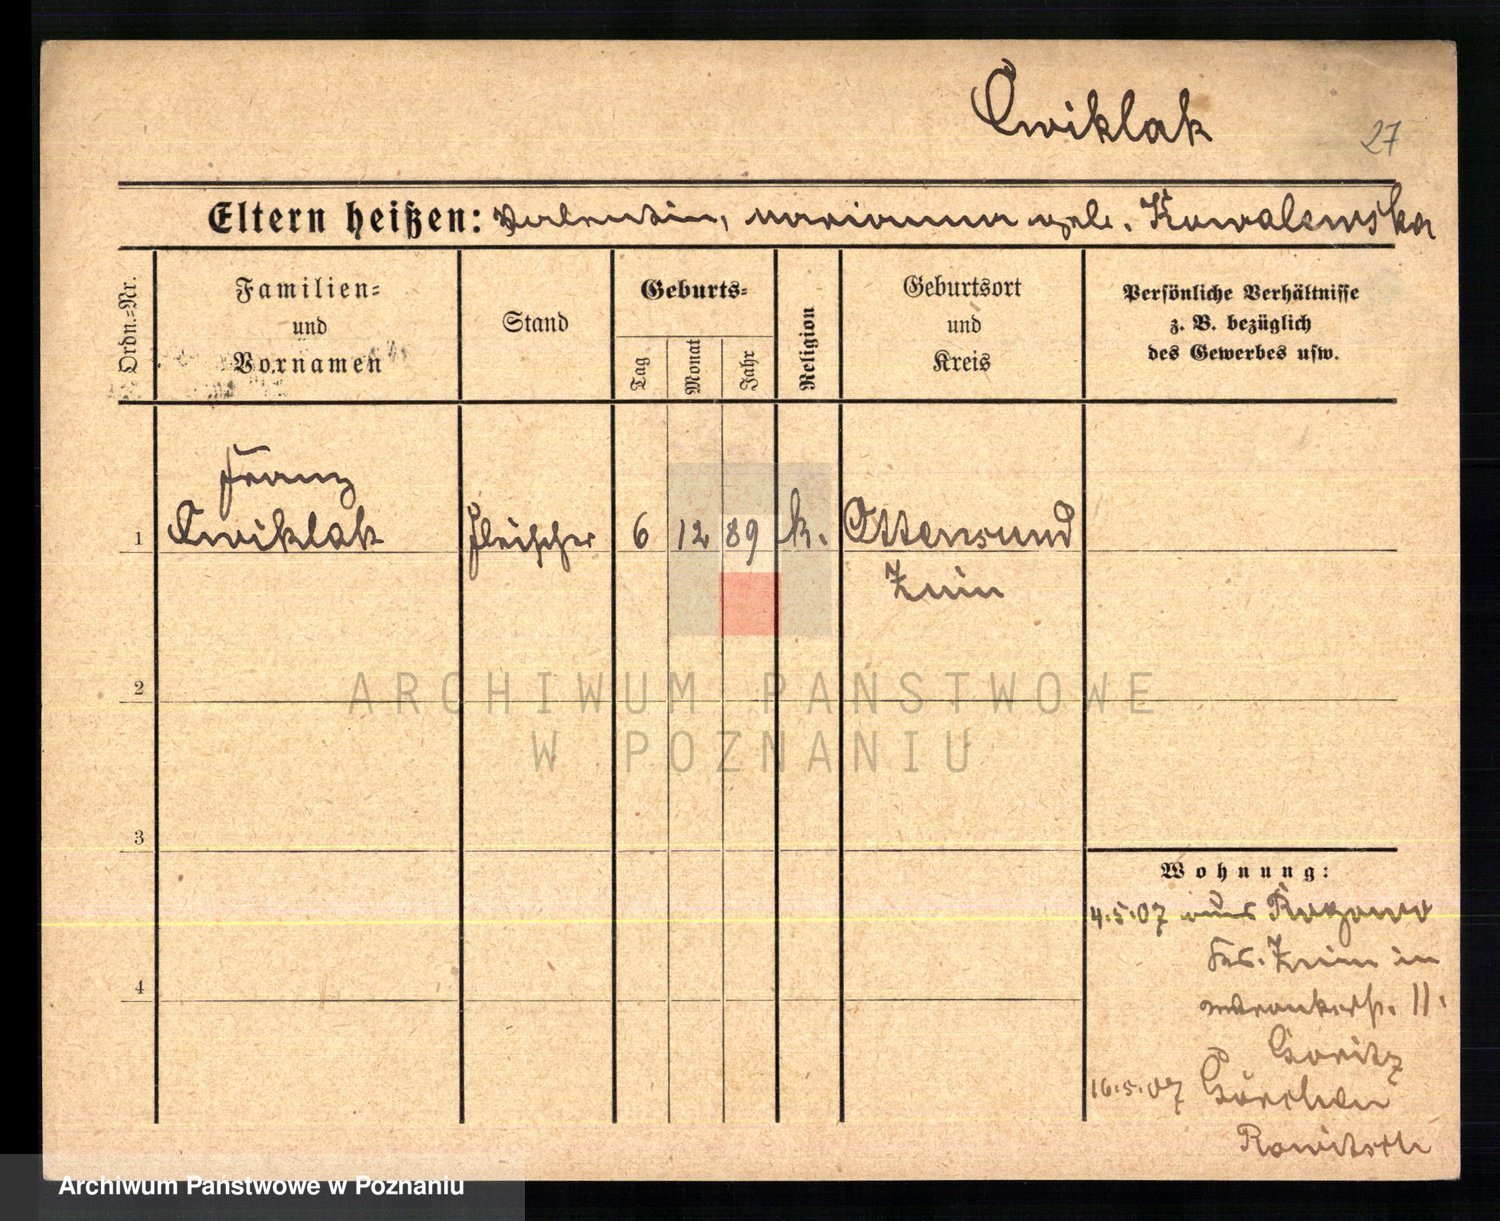 Cwiklak
27
Eltern heißen: Valentin, Marianna geb. Kowalewska
Ordn.=Nr.
Familien=
und
Vornamen
Stand
Geburts=
Tag
Monat
Jahr
Religion
Geburtsort
und
Kreis
Persönliche Verhältnisse
z. B. bezüglich
des Gewerbes usw.
Franz
1 Cwiklak Fleischer 6 12 89 k. Ottensund
Znin
2
ARCHIWUM PAŃSTWOWE
W POZNANIU
3
Wohnung:
4.5.07 aus Rogowo
Krs. Znin in
4
11.
Goritz
16.5.07 Görchen
Rawitsch
Archiwum Państwowe w Poznaniu